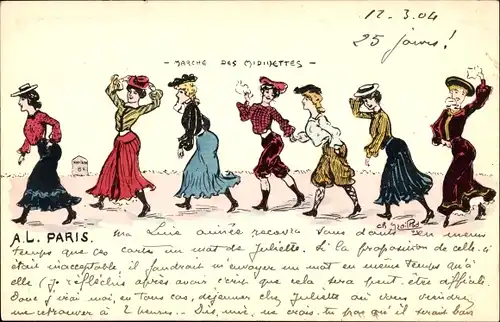 12-3.04
25 jours!
- MARCHE DES MIDINETTES -
A.L. PARIS.
ma Line aimée recevra sans doute en même
temps que ces cartes un mot de Juliette. Si la proposition de celle-ci
était inacceptable, il faudrait m'envoyer un mot en même temps qu'à
elle (je réfléchis après avoir écrit que cela sera peut être difficile.
Donc j'irai moi, en tous cas, déjeuner chez Juliette où vous viendrez
me retrouver à 2 heures.. Dis, mie, ne crois-tu pas que il serait bon